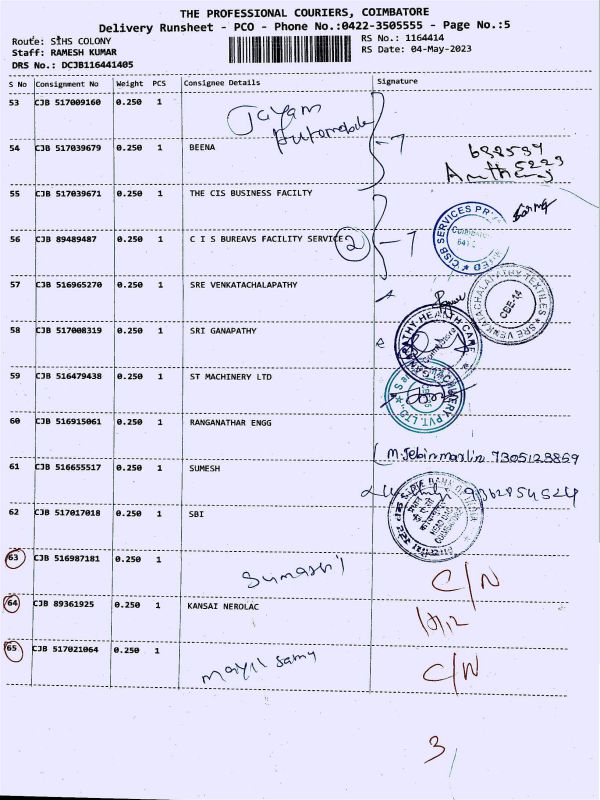 THE PROFESSIONAL COURIERS, COIMBATORE
Delivery Runsheet - PCO - Phone No.:0422-3505555 - Page No.:5
Route: SIHS COLONY
RS No.: 1164414
Staff: RAMESH KUMAR
RS Date: 04-May-2023
DRS No.: DCJB116441405
S No Consignment No Weight PCS Consignee Details Signature
53 CJB 517009160 0.250 1 Jayam Automobile
54 CJB 517039679 0.250 1 BEENA
55 CJB 517039671 0.250 1 THE CIS BUSINESS FACILTY
56 CJB 89489487 0.250 1 C I S BUREAVS FACILITY SERVICE 2
57 CJB 516965270 0.250 1 SRE VENKATACHALAPATHY
SRE VENKATACHALAPATHY TEXTILES CBE-14
58 CJB 517008319 0.250 1 SRI GANAPATHY
59 CJB 516479438 0.250 1 ST MACHINERY LTD
60 CJB 516915061 0.250 1 RANGANATHAR ENGG
M. Jebinmarlin 7305123869
61 CJB 516655517 0.250 1 SUMESH
62 CJB 517017018 0.250 1 SBI
63 CJB 516987181 0.250 1 C/N
64 CJB 89361925 0.250 1 KANSAI NEROLAC
65 CJB 517021064 0.250 1 mayil samy C/N
3